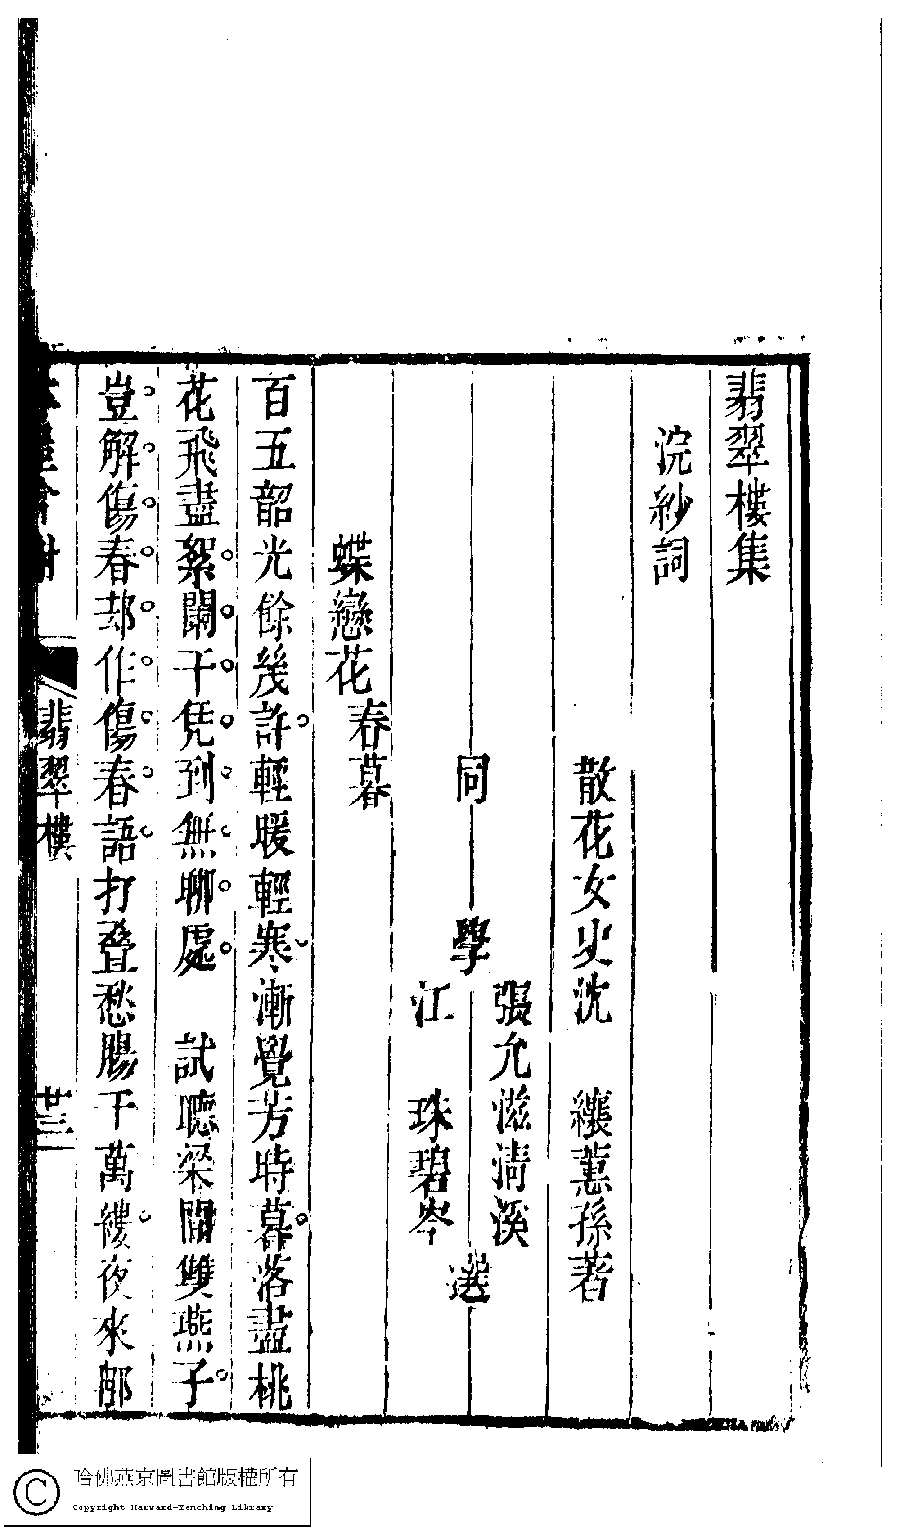 翡翠樓集
浣紗詞
散花女史沈　纕蕙孫著
張允滋清溪
同　學　選
江　珠碧岑
蝶戀花春暮
百五韶光餘幾許輕暖輕寒漸覺芳時暮落盡桃
花飛盡絮闌干凭到無聊處　試聽梁間雙燕子
豈解傷春却作傷春語打叠愁腸千萬縷夜來那
翡翠樓
廿三
哈佛燕京圖書館版權所有
Copyright Harvard-Yenching Library